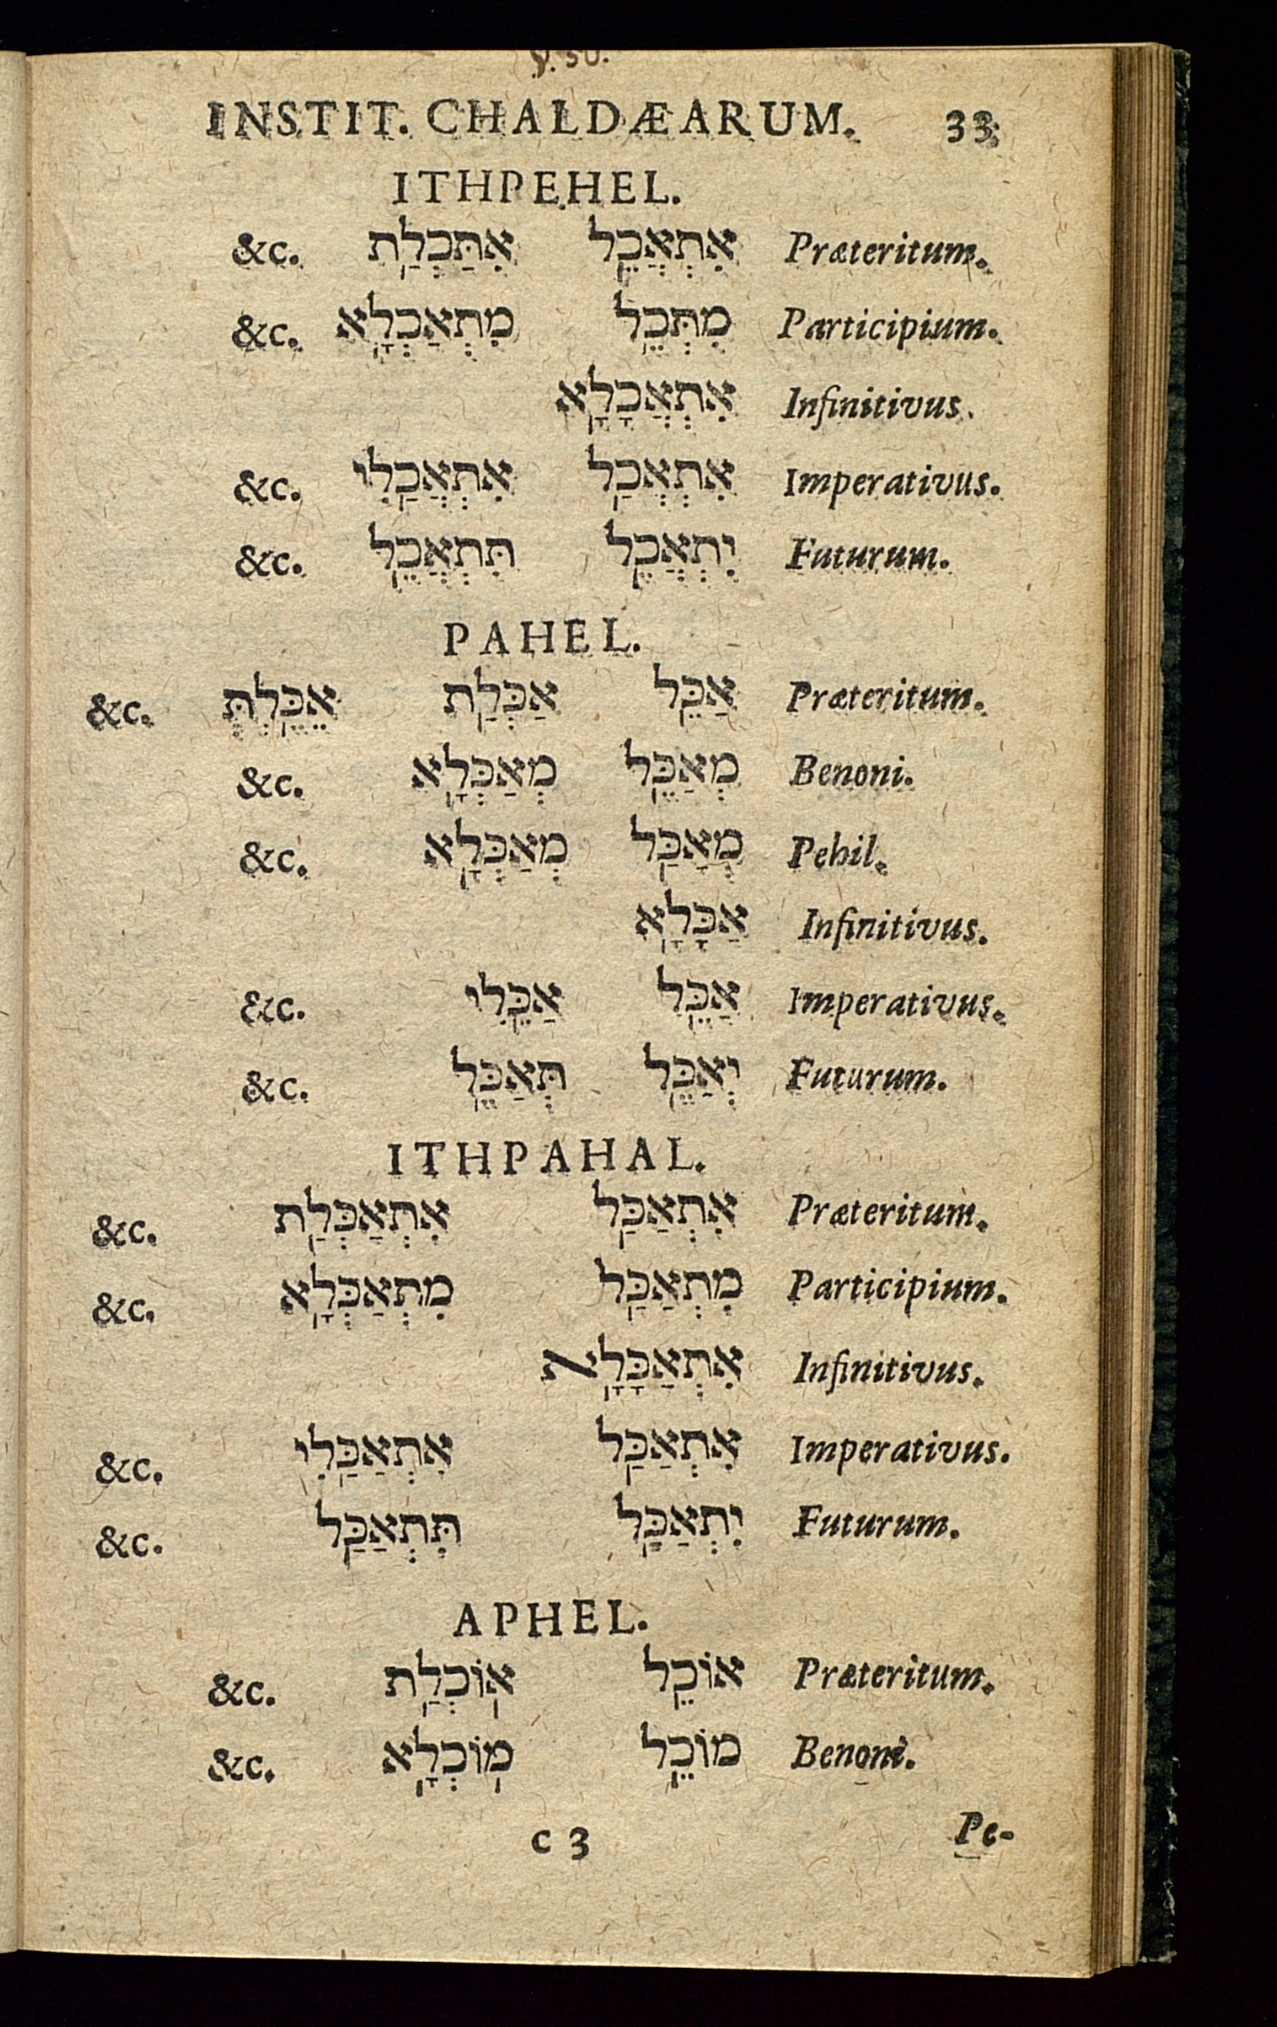 INSTIT. CHALDÆARUM. 33
ITHPEHEL.
Præteritum. אִתְאֲכֵל אִתַּכְלַת &c.
Participium. מִתְּכֵל מִתְאַכְלָא &c.
Infinitivus. אִתְאֲכָלָא
Imperativus. אִתְאֲכַל אִתְאֲכַלִי &c.
Futurum. יִתְאֲכֵל תִּתְאֲכֵל &c.
PAHEL.
Præteritum. אַכֵּל אַכְּלַת אֲכֵּלְתְּ &c.
Benoni. מְאַכֵּל מְאַכְּלָא &c.
Pehil. מְאַכַּל מְאַכְּלָא &c.
Infinitivus. אַכָּלָא
Imperativus. אַכֵּל אַכֵּלִי &c.
Futurum. יְאַכֵּל תְּאַכֵּל &c.
ITHPAHAL.
Præteritum. אִתְאַכַּל אִתְאַכְּלַת &c.
Participium. מִתְאַכַּל מִתְאַכְּלָא &c.
Infinitivus. אִתְאַכָּלָא
Imperativus. אִתְאַכַּל אִתְאַכַּלִי &c.
Futurum. יִתְאַכַּל תִּתְאַכַּל &c.
APHEL.
Præteritum. אוֹכֵל אוֹכְלַת &c.
Benoni. מוֹכֵל מוֹכְלָא &c.
C 3 Pe-